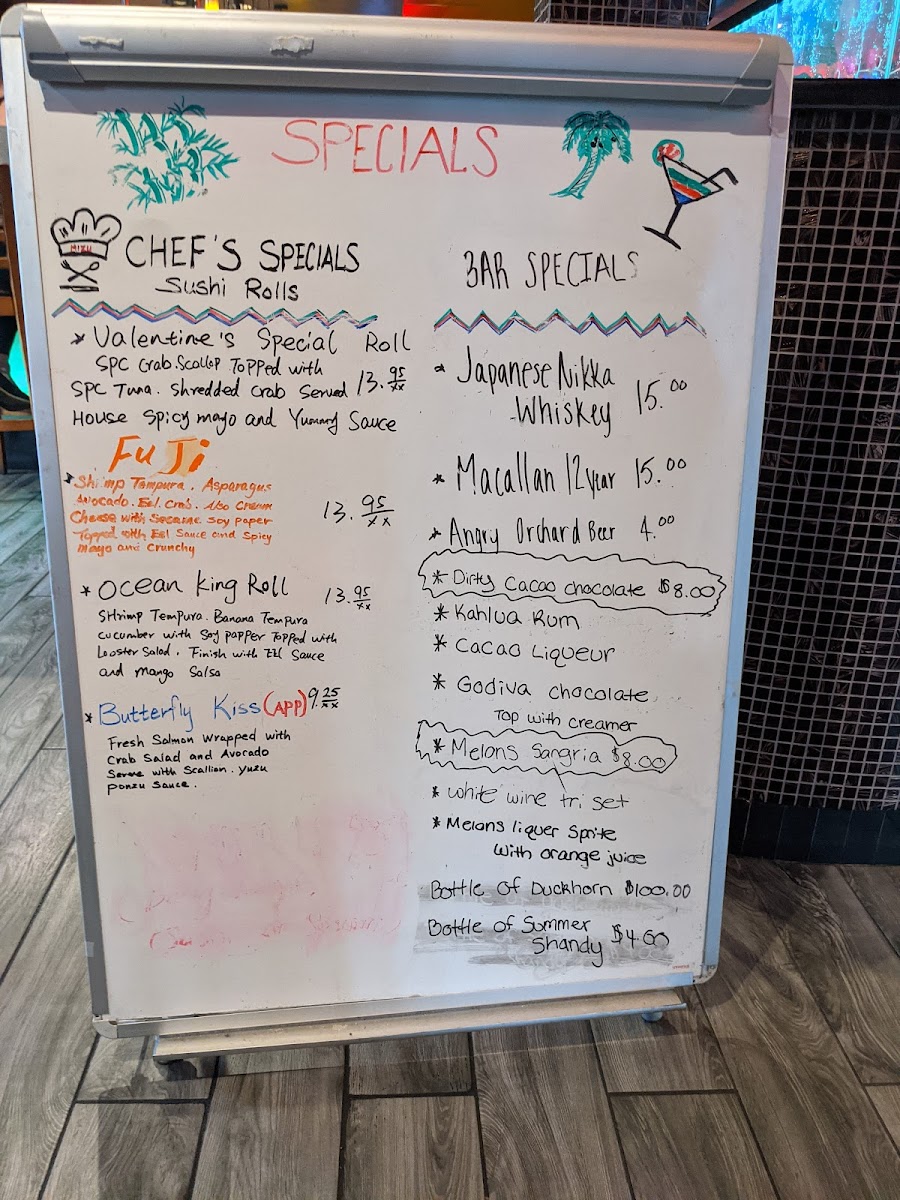 SPECIALS
MIZU
CHEF'S SPECIALS
Sushi Rolls
* Valentine's Special Roll
SPC Crab. Scallop Topped with
SPC Tuna. Shredded Crab Served
House Spicy mayo and Yummy Sauce
13.95/xx
FuJi
* Shrimp Tempura. Asparagus
Avocado. Eel. Crab. Also Cream
Cheese with Sesame Soy paper
Topped with Eel Sauce and Spicy
Mayo and Crunchy
13.95/xx
* Ocean King Roll 13.95/xx
SHrimp Tempura. Banana Tempura
cucumber with Soy papper Topped with
Lobster Salad. Finish with Eel Sauce
and Mango Salsa
* Butterfly Kiss (APP) 9.25/xx
Fresh Salmon Wrapped with
Crab Salad and Avocado
Serve with Scallion. Yuzu
Ponzu Sauce.
BAR SPECIALS
* Japanese Nikka
-Whiskey 15.00
* Macallan 12 year 15.00
* Angry Orchard Beer 4.00
* Dirty Cacao chocolate $8.00
* Kahlua Rum
* Cacao Liqueur
* Godiva chocolate
Top with creamer
* Melons Sangria $8.00
* white wine tri set
* Melons liquer Sprite
with orange juice
Bottle Of Duckhorn $100.00
Bottle of Summer
Shandy $4.00